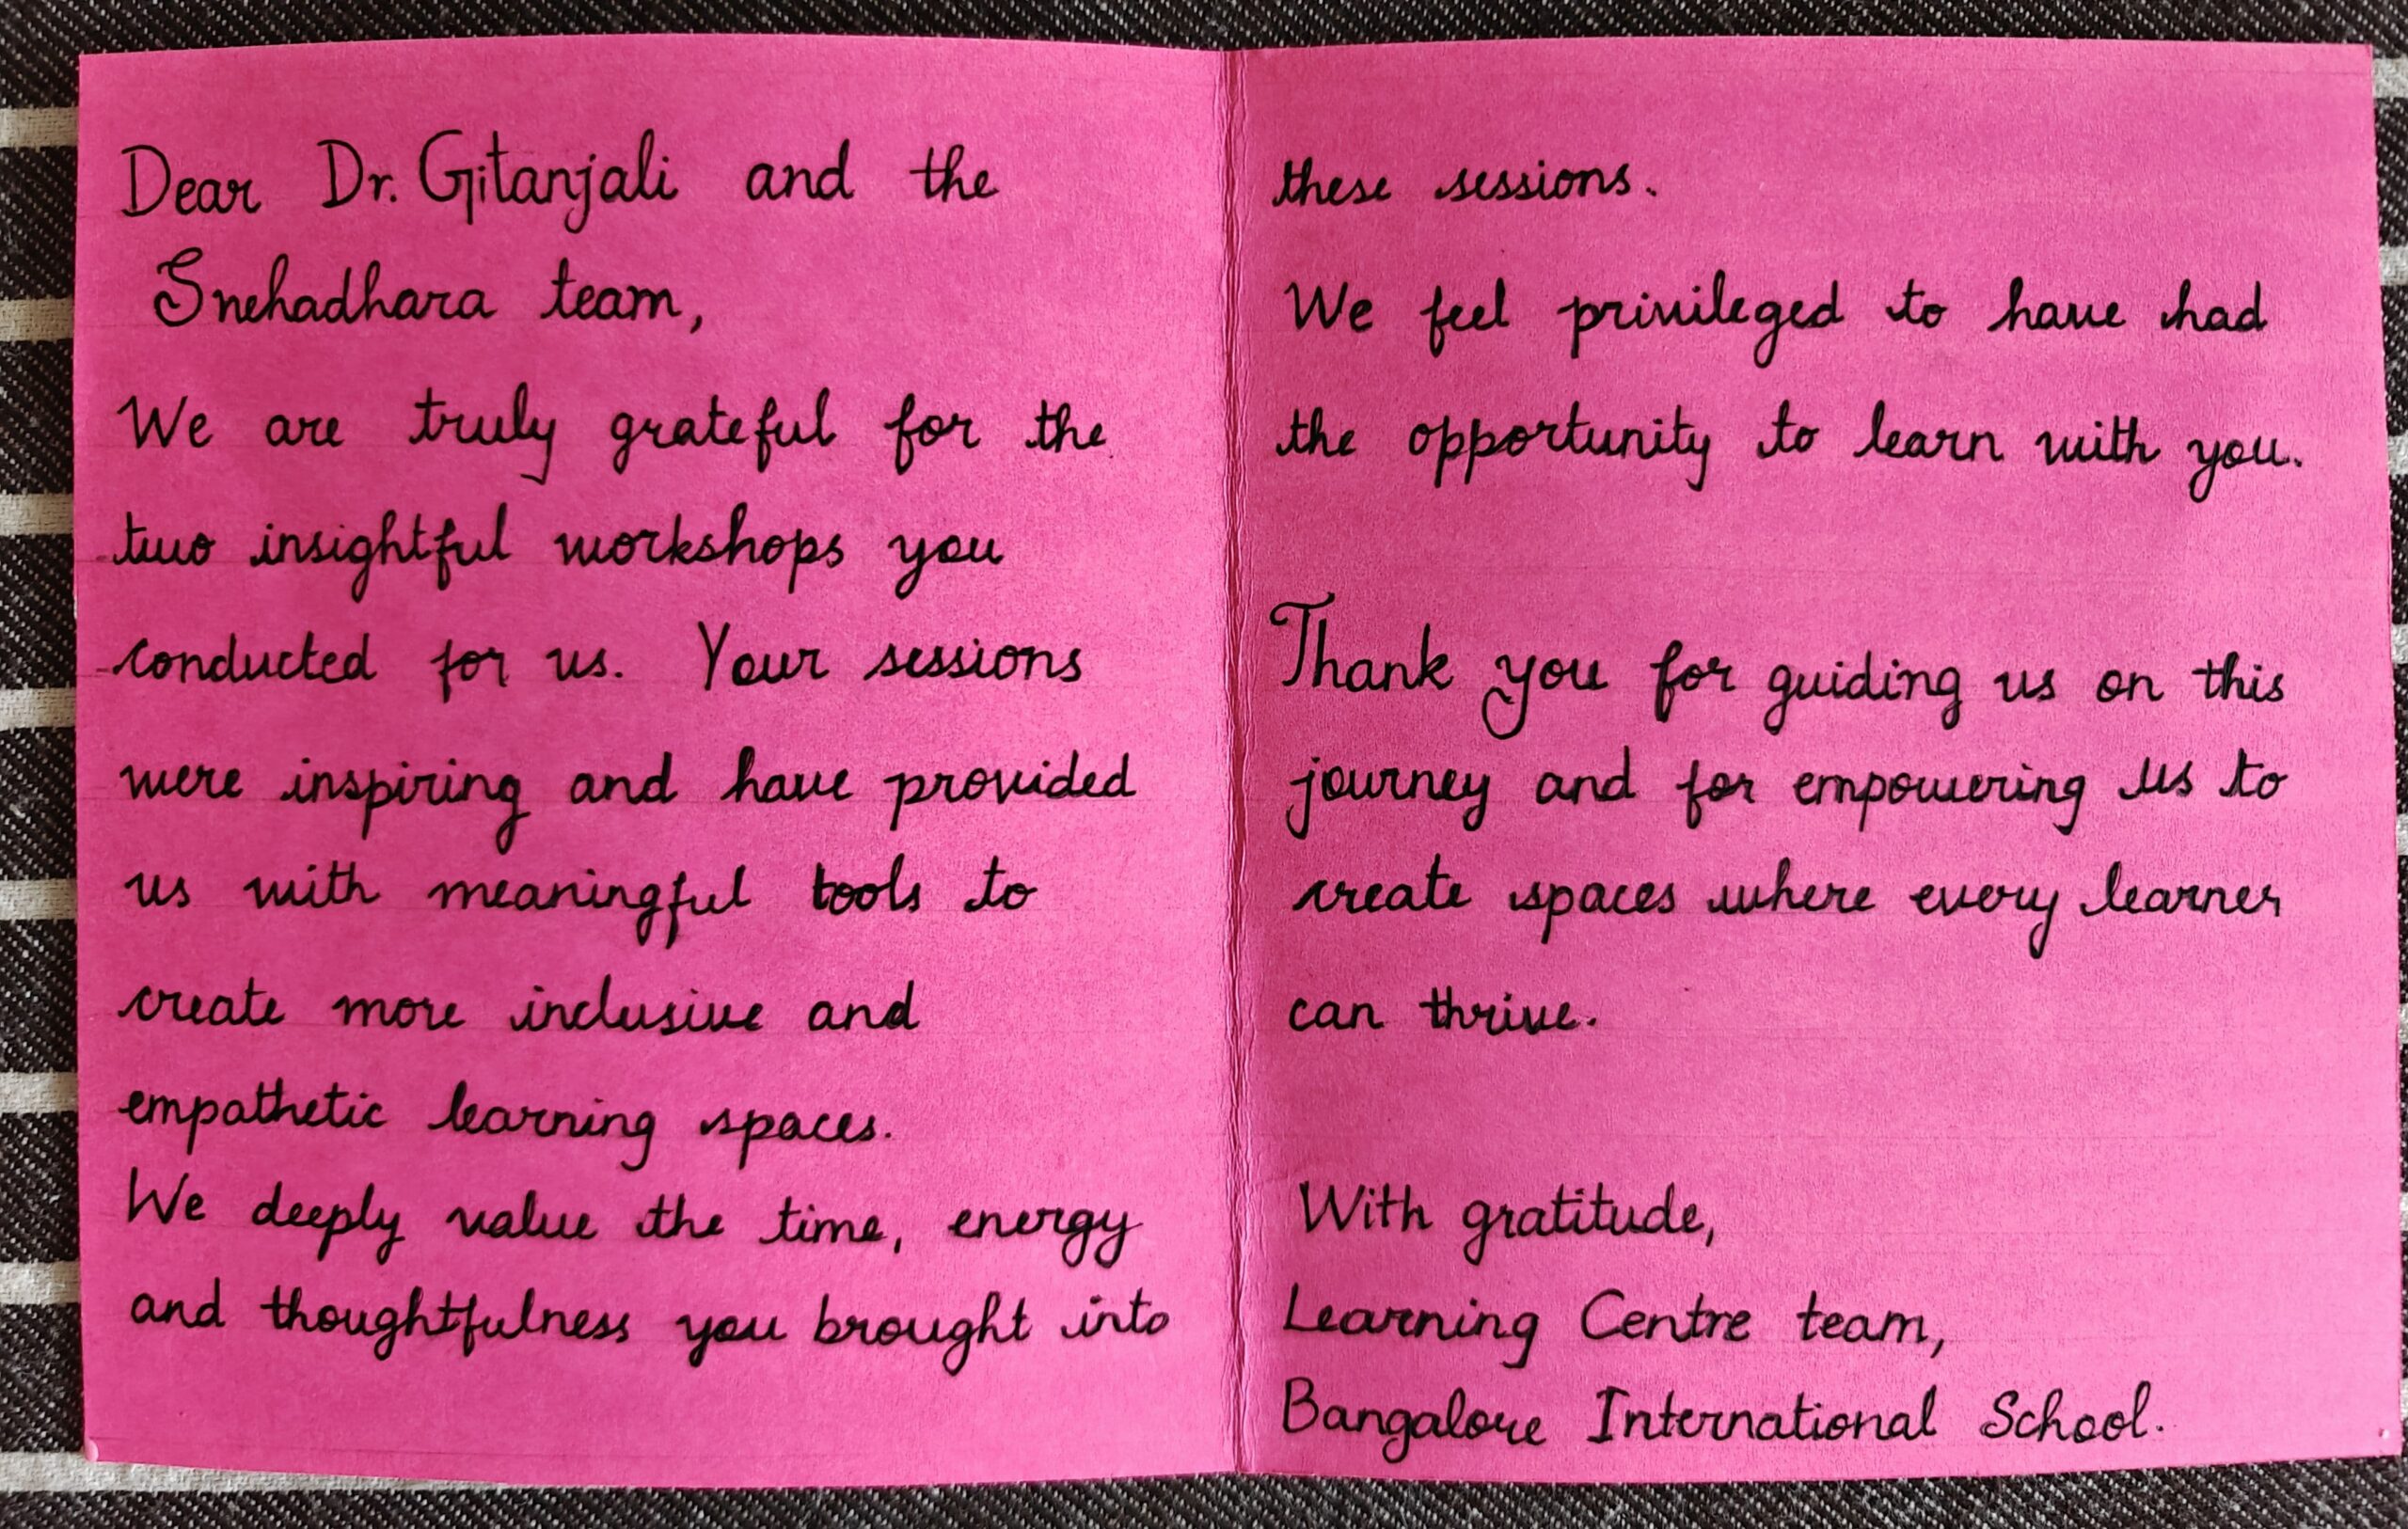 Dear Dr. Gitanjali and the
Snehadhara team,
We are truly grateful for the
two insightful workshops you
conducted for us. Your sessions
were inspiring and have provided
us with meaningful tools to
create more inclusive and
empathetic learning spaces.
We deeply value the time, energy
and thoughtfulness you brought into
these sessions.
We feel privileged to have had
the opportunity to learn with you.
Thank you for guiding us on this
journey and for empowering us to
create spaces where every learner
can thrive.
With gratitude,
Learning Centre team,
Bangalore International School.